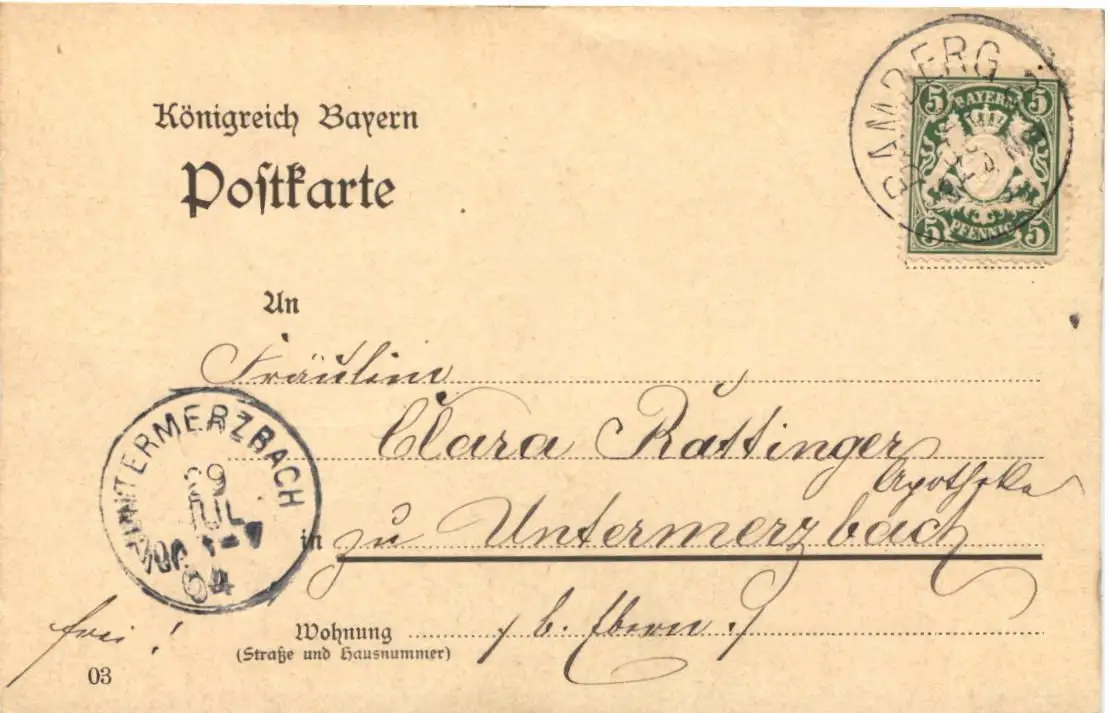 Königreich Bayern
Postkarte
BAMBERG 2
5 BAYERN 5
5 PFENNIG 5
An
Fräulein
Clara Rattinger
Apotheke
in zu Untermerzbach
UNTERMERZBACH
29
JUL
04
frei!
Wohnung / b. Ebern. /
(Straße und Hausnummer)
03